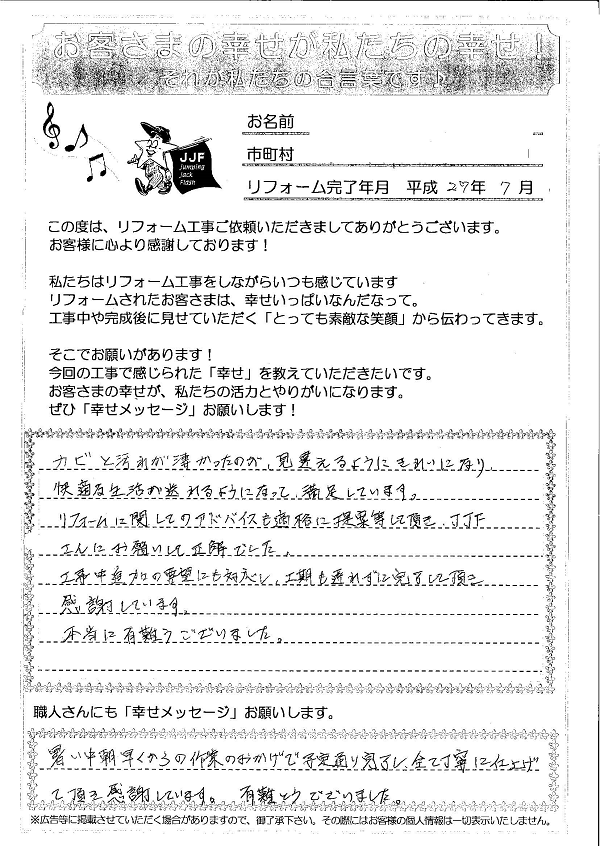 お客さまの幸せが私たちの幸せ！
それが私たちの合言葉です♪
JJF
Jumping
Jack
Flash
お名前
市町村
リフォーム完了年月 平成 27年 7月
この度は、リフォーム工事ご依頼いただきましてありがとうございます。
お客様に心より感謝しております！
私たちはリフォーム工事をしながらいつも感じています
リフォームされたお客さまは、幸せいっぱいなんだなって。
工事中や完成後に見せていただく「とっても素敵な笑顔」から伝わってきます。
そこでお願いがあります！
今回の工事で感じられた「幸せ」を教えていただきたいです。
お客さまの幸せが、私たちの活力とやりがいになります。
ぜひ「幸せメッセージ」お願いします！
カビと汚れが凄かったのが、見違えるようにきれいになり、
快適な生活が送れるようになって、満足しています。
リフォームに関してのアドバイスも適格に提案等して頂き、JJF
さんにお願いして正解でした。
工事中追加の要望にも対応し、工期も遅れずに完了して頂き
感謝しています。
本当に有難うございました。
職人さんにも「幸せメッセージ」お願いします。
暑い中朝早くからの作業のおかげで予定通り完了し、全て丁寧に仕上げ
て頂き感謝しています。 有難とうございました。
※広告等に掲載させていただく場合がありますので、御了承下さい。その際にはお客様の個人情報は一切表示いたしません。